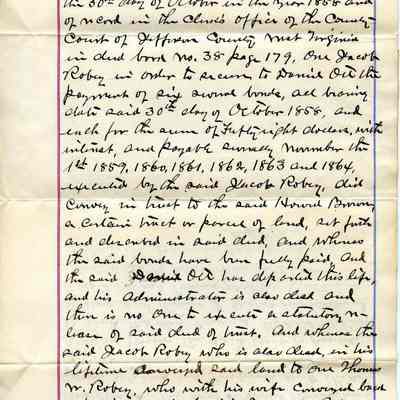 the 30th day of October in the year 1858 and
of record in the Clerks office of the County
Court of Jefferson County West Virginia
in deed book No. 38 page 179, One Jacob
Robey in order to secure to Daniel Ott the
payment of six several bonds, all bearing
date said 30th day of October 1858, and
each for the sum of Fifty eight dollars, with
interest, and payable severally November the
1st 1859, 1860, 1861, 1862, 1863 and 1864,
executed by the said Jacob Robey, did
Convey in trust to the said Howard Brown,
a certain tract or parcel of land, set forth
and described in said deed, and whereas
the said bonds have been fully paid, and
the said Daniel Ott has departed this life,
and his Administrator is also dead and
there is no one to execute a statutory re-
lease of said deed of trust, And whereas the
said Jacob Robey who is also dead, in his
lifetime Conveyed said land to one Thomas
W. Robey, who with his wife Conveyed back